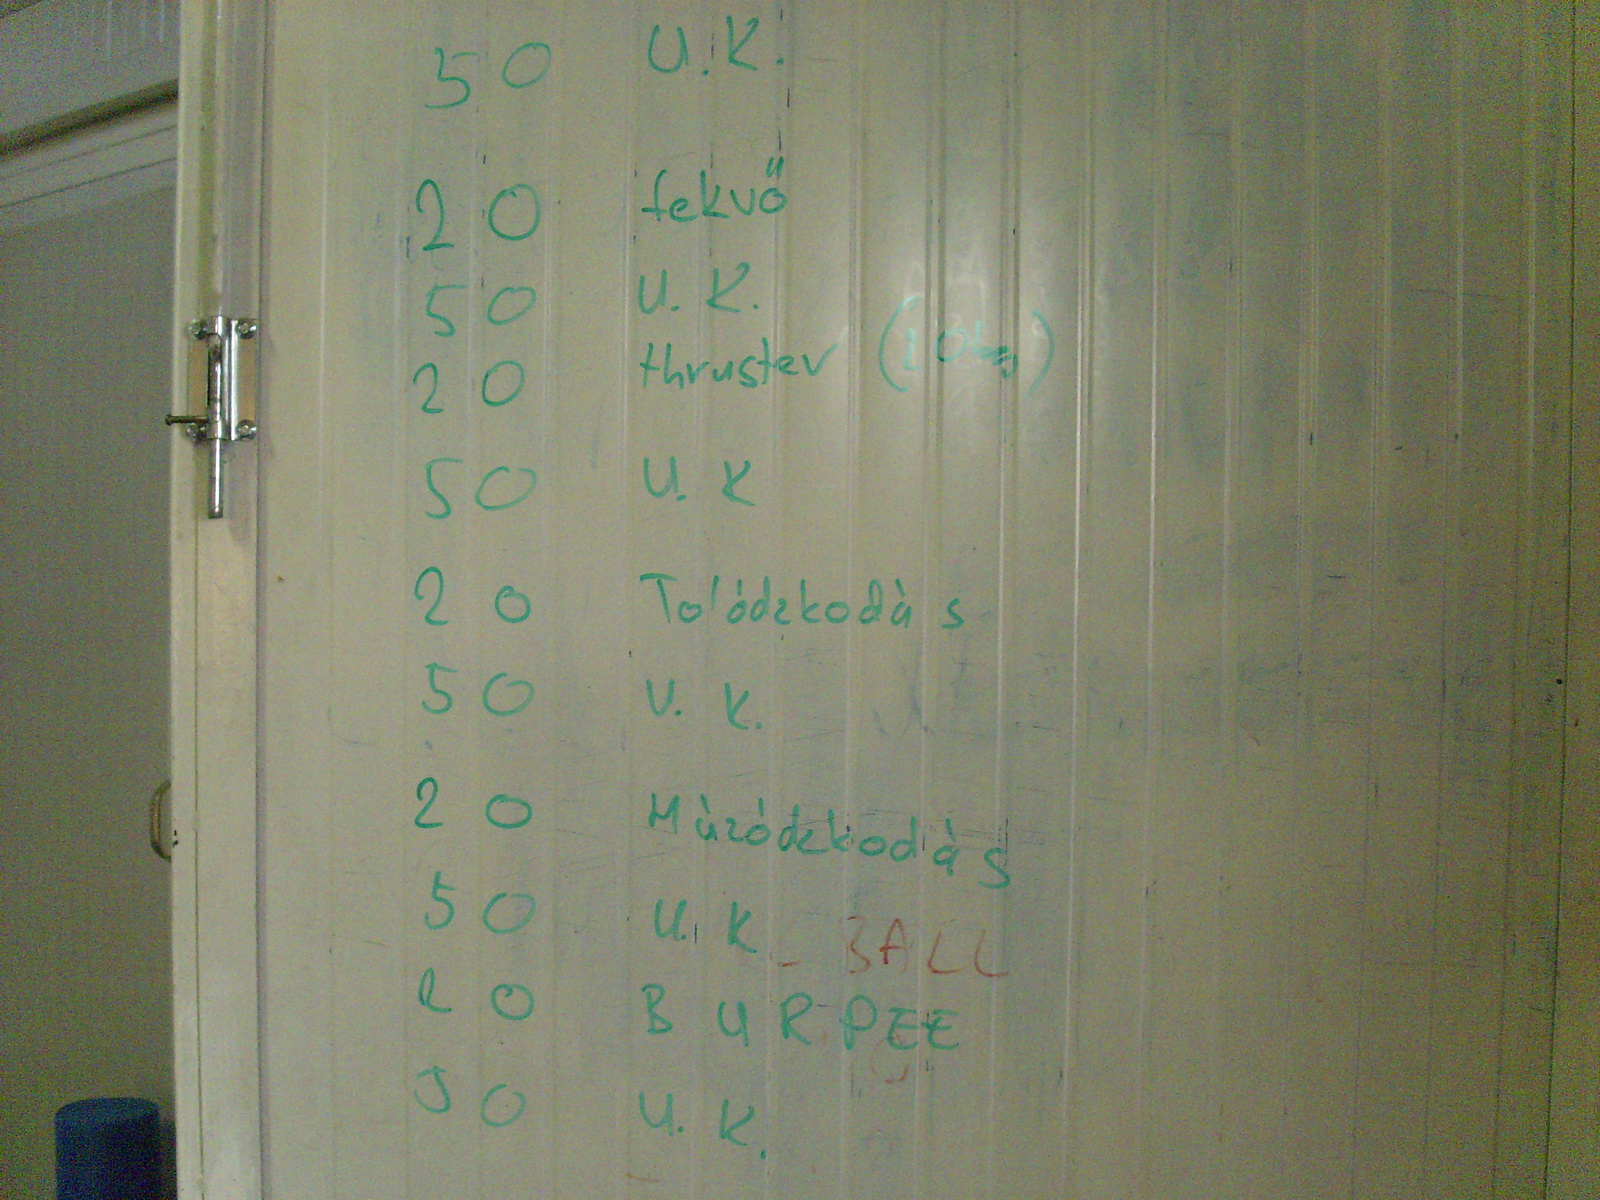 50 U.K.
20 fekvő
50 U.K.
20 thruster (10kg)
50 U.K
20 Tolódzkodás
50 U.K.
20 Húzódzkodás
50 U.K - BALL
20 BURPEE
50 U.K.